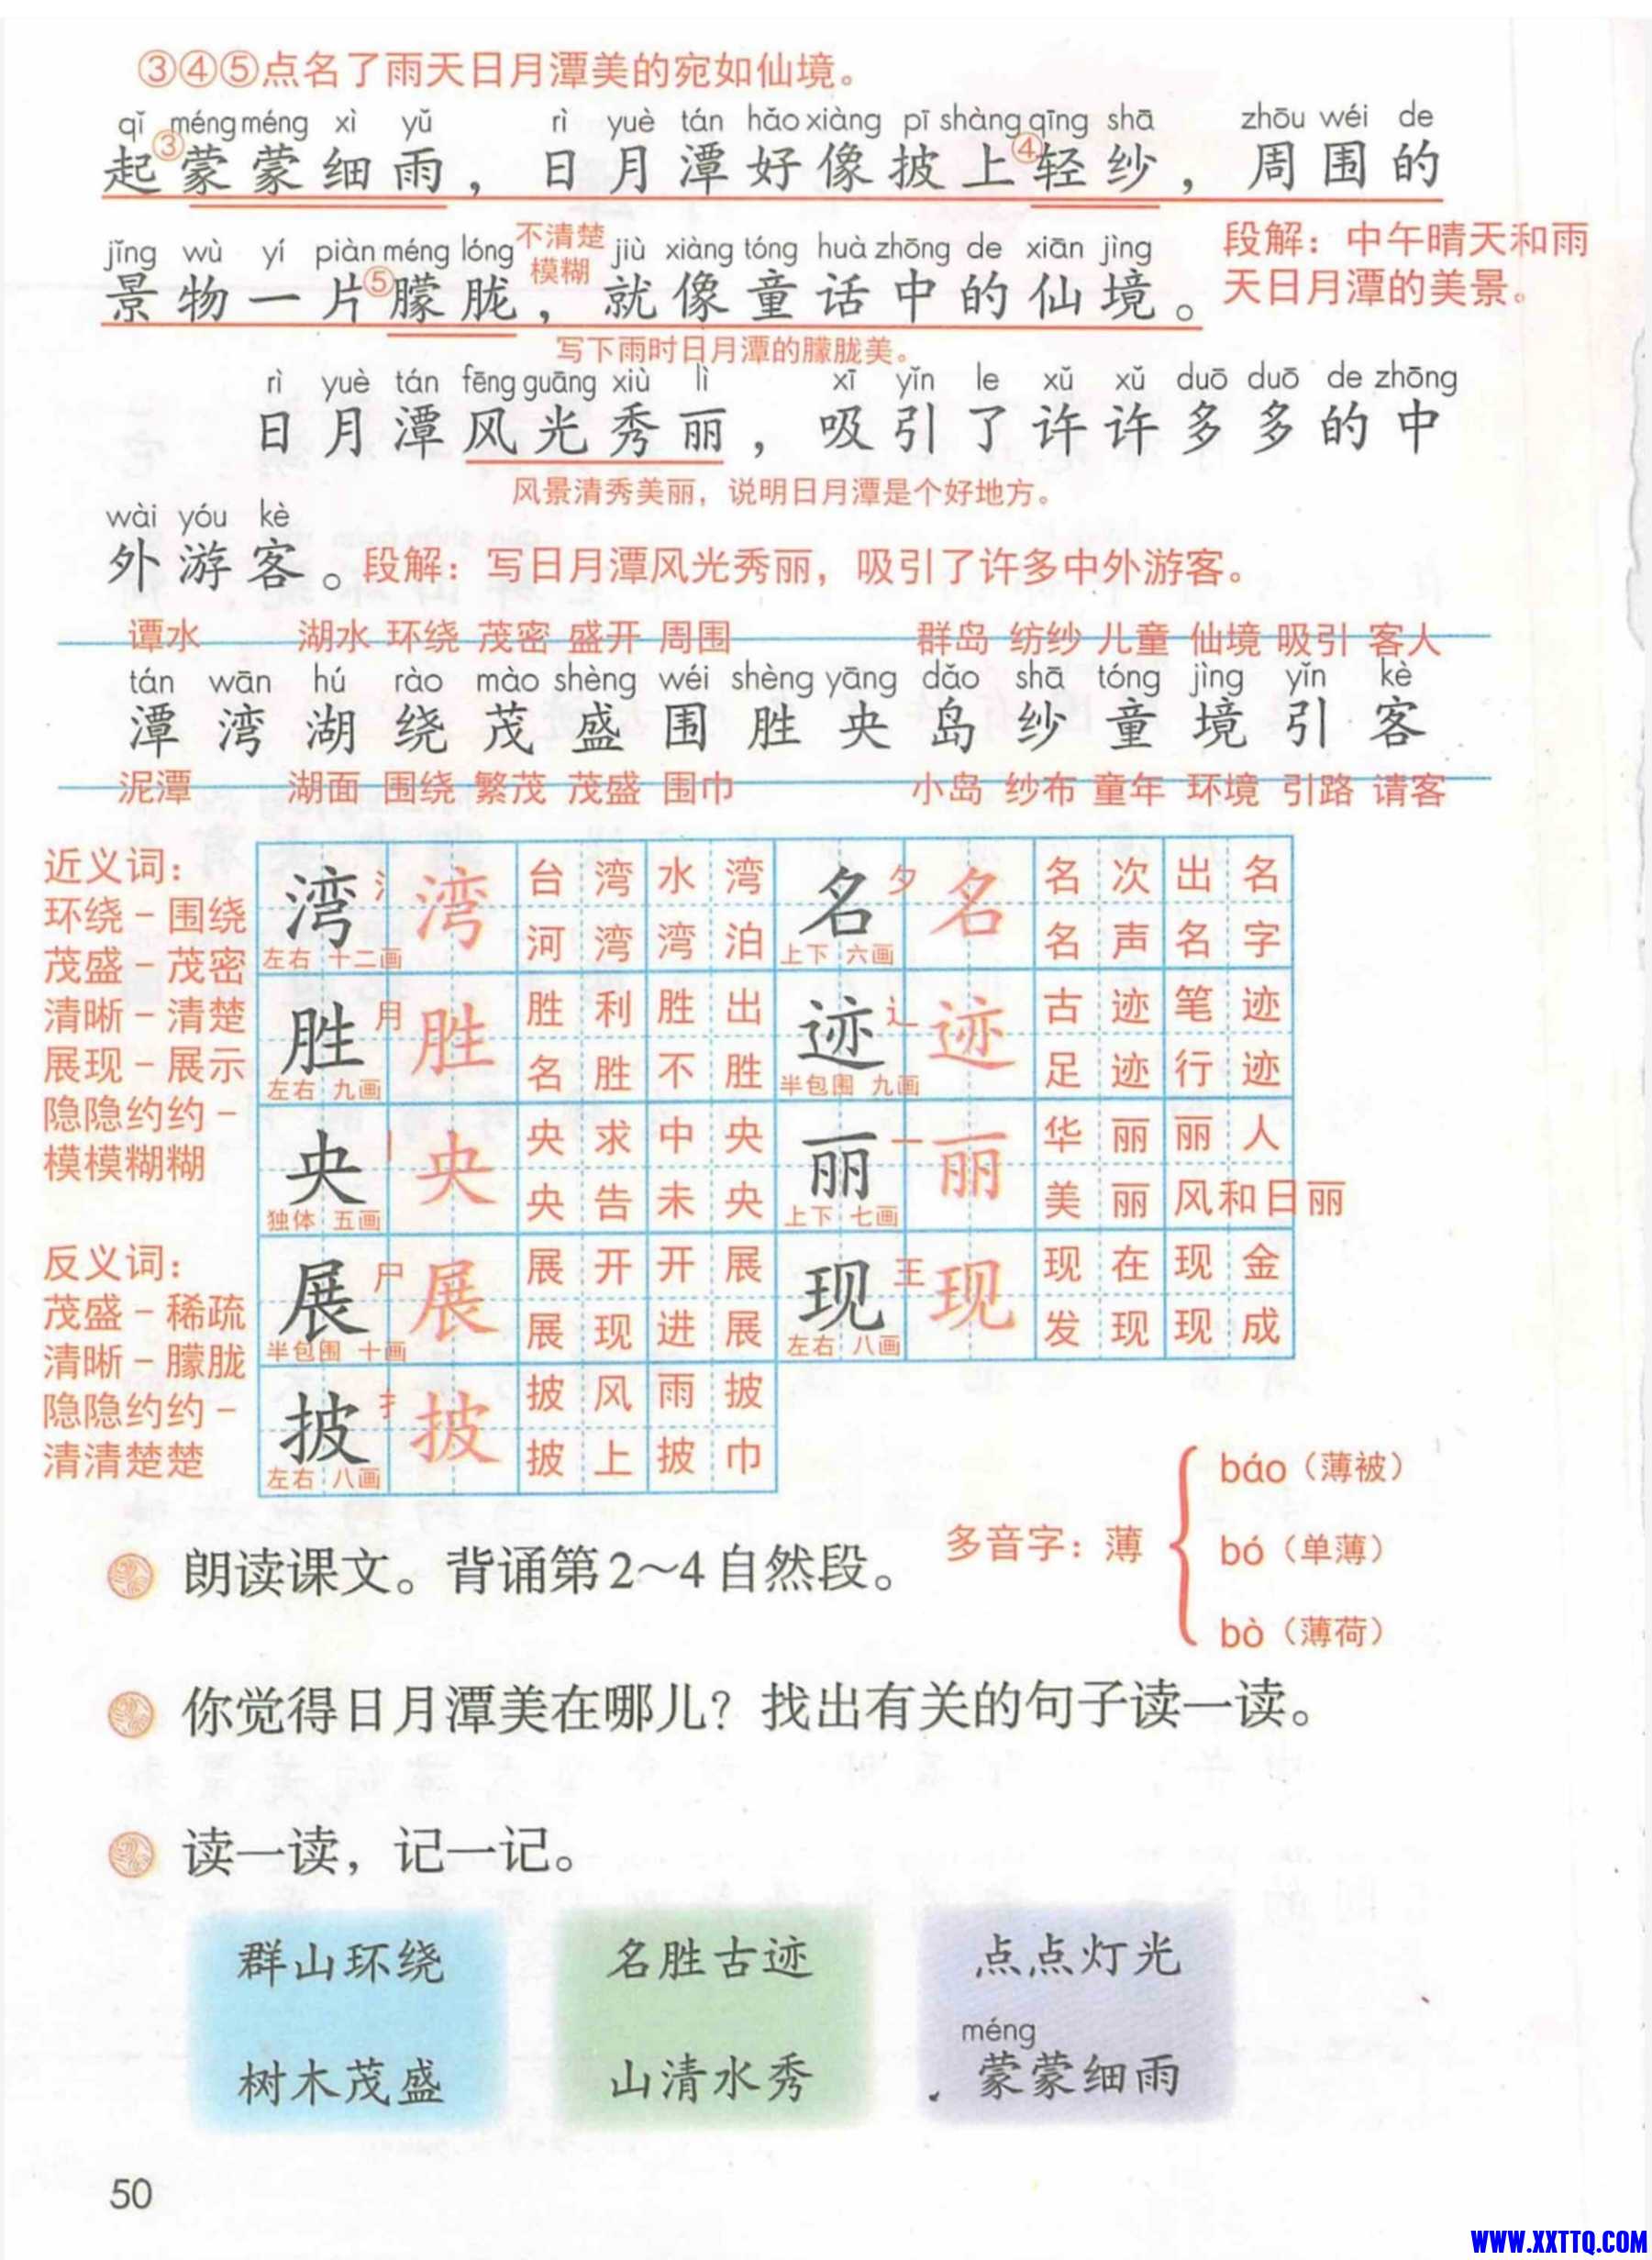 ③④⑤点名了雨天日月潭美的宛如仙境。
qǐ méng méng xì yǔ rì yuè tán hǎo xiàng pī shàng qīng shā zhōu wéi de
起③蒙蒙细雨，日月潭好像披上④轻纱，周围的
jǐng wù yí piàn méng lóng 不清楚 jiù xiàng tóng huà zhōng de xiān jìng 段解：中午晴天和雨
模糊
景物一片⑤朦胧，就像童话中的仙境。天日月潭的美景。
写下雨时日月潭的朦胧美。
rì yuè tán fēng guāng xiù lì xī yǐn le xǔ xǔ duō duō de zhōng
日月潭风光秀丽，吸引了许许多多的中
风景清秀美丽，说明日月潭是个好地方。
wài yóu kè
外游客。段解：写日月潭风光秀丽，吸引了许多中外游客。
谭水 湖水 环绕 茂密 盛开 周围 群岛 纺纱 儿童 仙境 吸引 客人
tán wān hú rào mào shèng wéi shèng yāng dǎo shā tóng jìng yǐn kè
潭 湾 湖 绕 茂 盛 围 胜 央 岛 纱 童 境 引 客
泥潭 湖面 围绕 繁茂 茂盛 围巾 小岛 纱布 童年 环境 引路 请客
近义词：
环绕－围绕
茂盛－茂密
清晰－清楚
展现－展示
隐隐约约－
模模糊糊
反义词：
茂盛－稀疏
清晰－朦胧
隐隐约约－
清清楚楚
湾 氵 湾 台湾 水湾
左右 十二画 河湾 湾泊
名 夕 名 名次 出名
上下 六画 名声 名字
胜 月 胜 胜利 胜出
左右 九画 名胜 不胜
迹 辶 迹 古迹 笔迹
半包围 九画 足迹 行迹
央 丨 央 央求 中央
独体 五画 央告 未央
丽 一 丽 华丽 丽人
上下 七画 美丽 风和日丽
展 尸 展 展开 开展
半包围 十画 展现 进展
现 王 现 现在 现金
左右 八画 发现 现成
披 扌 披 披风 雨披
左右 八画 披上 披巾
多音字：薄
báo（薄被）
bó（单薄）
bò（薄荷）
朗读课文。背诵第2～4自然段。
你觉得日月潭美在哪儿？找出有关的句子读一读。
读一读，记一记。
群山环绕 名胜古迹 点点灯光
méng
树木茂盛 山清水秀 蒙蒙细雨
50
WWW.XXTTQ.COM